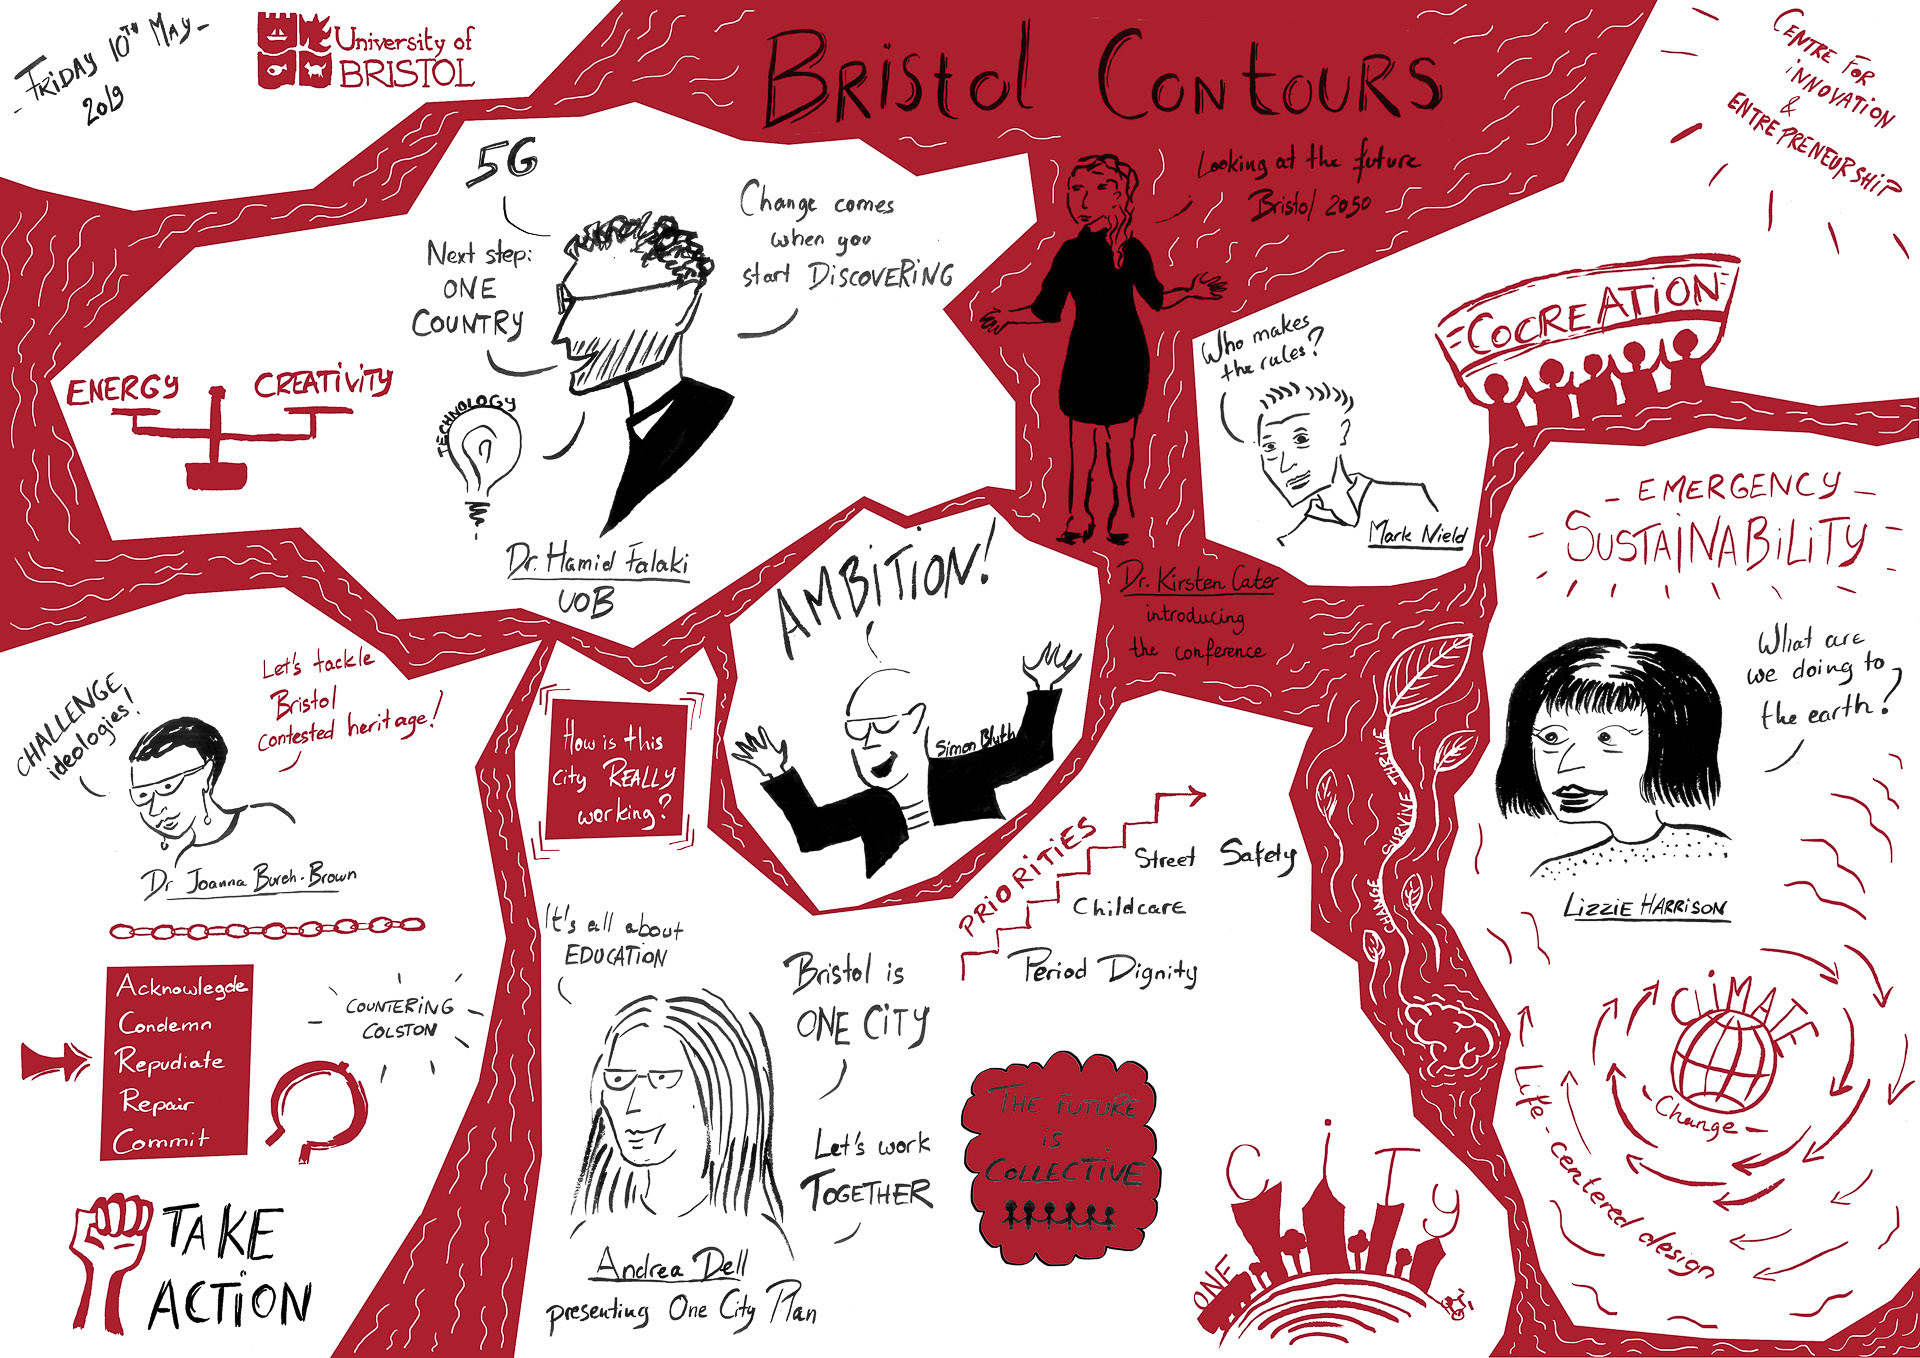 - FRIDAY 10TH MAY -
2019
University of
BRISTOL
BRISTOL CONTOURS
CENTRE FOR
INNOVATION
&
ENTREPRENEURSHIP
5G
Next step:
ONE
COUNTRY
Change comes
when you
start DISCOVERING
ENERGY
CREATIVITY
TECHNOLOGY
Dr. Hamid Falaki
UOB
Looking at the future
Bristol 2050
Dr. Kirsten Cater
introducing
the conference
Who makes
the rules?
Mark Nield
COCREATION
- EMERGENCY -
SUSTAINABILITY
What are
we doing to
the earth?
LIZZIE HARRISON
CLIMATE
- Change -
Life-centered design
CHALLENGE
ideologies!
Let's tackle
Bristol
contested heritage!
Dr Joanna Burch-Brown
Acknowlegde
Condemn
Repudiate
Repair
Commit
COUNTERING
COLSTON
TAKE
ACTION
How is this
city REALLY
working?
AMBITION!
Simon Bluth
PRIORITIES
Street Safety
Childcare
Period Dignity
It's all about
EDUCATION
Bristol is
ONE CITY
Let's work
TOGETHER
Andrea Dell
presenting One City Plan
THE FUTURE
is
COLLECTIVE
CHANGE SURVIVE THRIVE
ONE
CITY